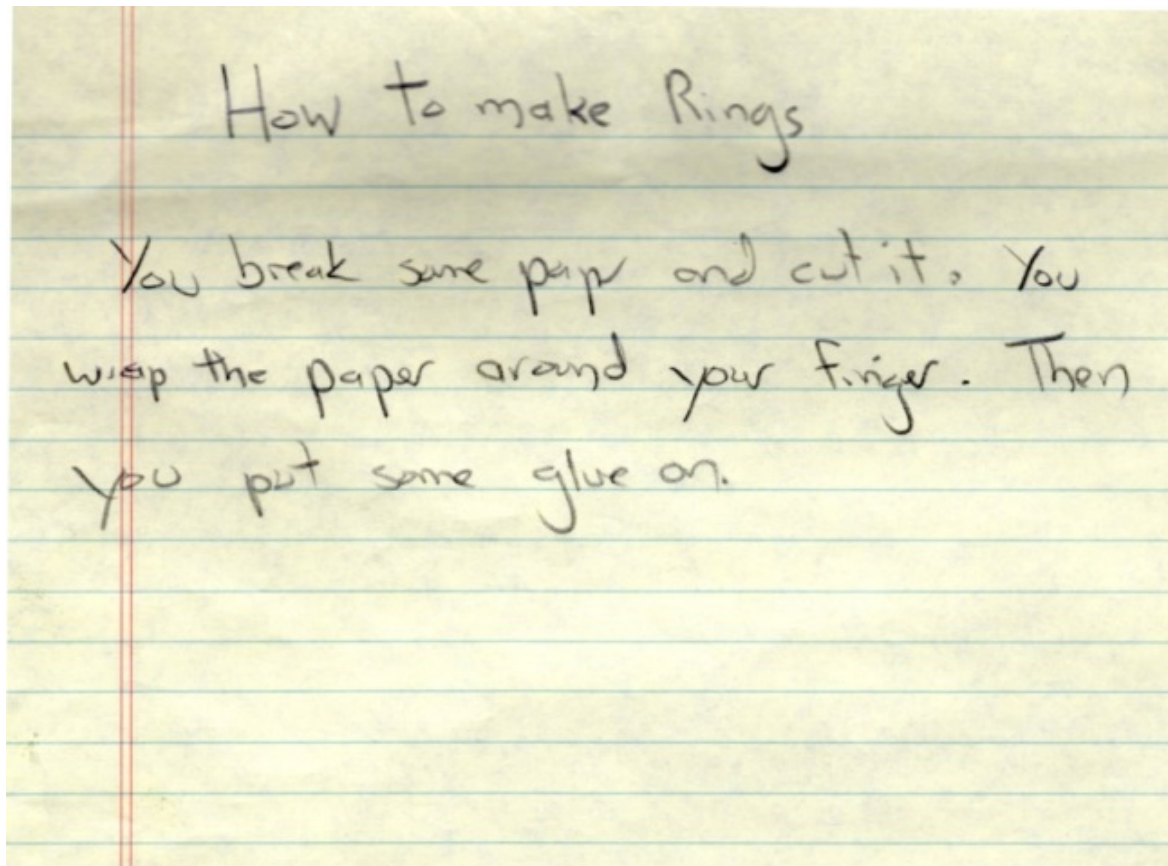 How to make Rings
You break some papr and cut it. You
wrap the paper around your finger. Then
you put some glue on.